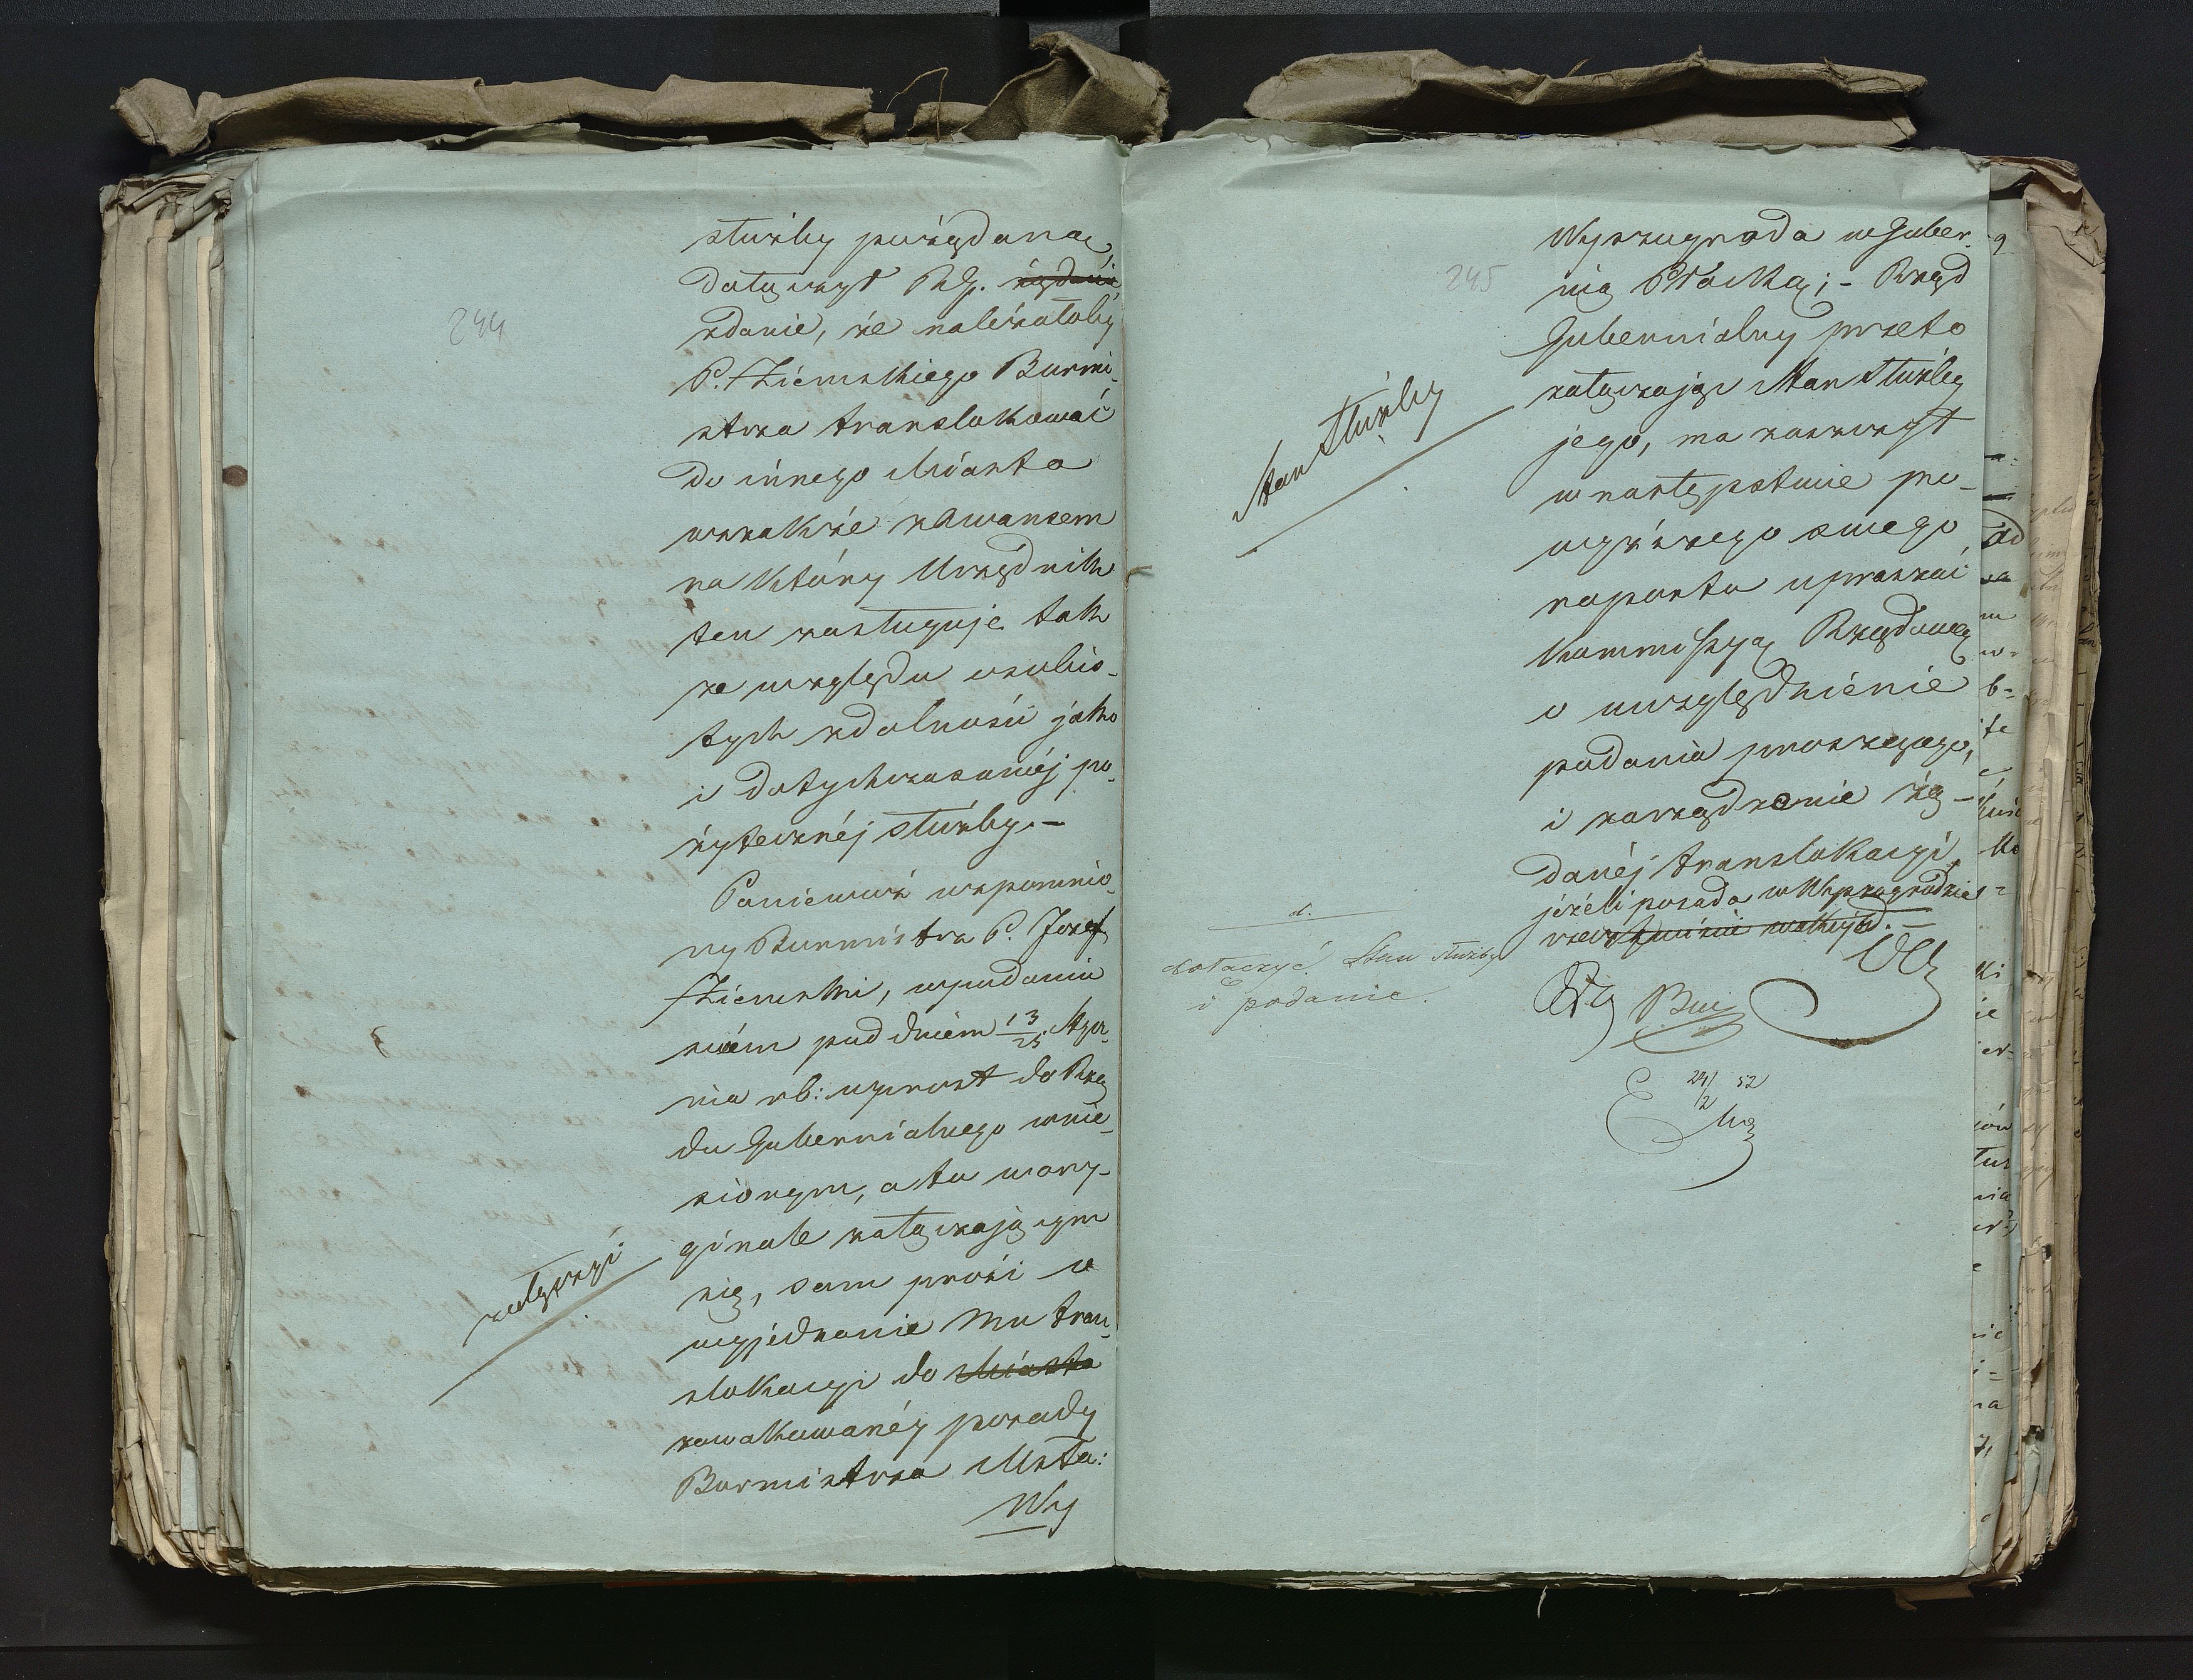 244
służby pożądaną
dołączył R. G. żądanie
zdanie, że należałoby
P. Ziemskiego Burmi-
strza translokować
do innego Miasta
wszakże z Awansem
na który Urzędnik
ten zasługuje tak
ze względu osobis-
tych zdolności jako
i dotychczasowéj po-
żytecznéj służby. –
Poniewaź wspomnio-
ny Burmistrz P. Jozef
Ziemski, w podaniu
swém pod dniem 13/25 Stycz-
nia rb: wprost do Rzą
du Gubernialnego wnie-
sionym, a tu w ory-
ginale załączającym
się, sam prosi o
wyjednanie Mu tran-
slokacyi do Miasta
zawakowanéy posady
Burmistrza Msta:
Wy
załączyć
245
Wyszogroda w Guber-
nią Płocką; – Rząd
Gubernialny przeto
załączając Stan Służby
jego, ma zaszczyt
w następstwie po-
wyższego swego
raportu upraszać
Kommissyą Rządową
o uwzględnienie
podania proszącego,
i zarządzenie żą-
danéj translokacyi,
jeżeli posada w Wyszogrodzie
Stan Służby
d.
dołaczyć Stan służby
i podanie.
24/2 52